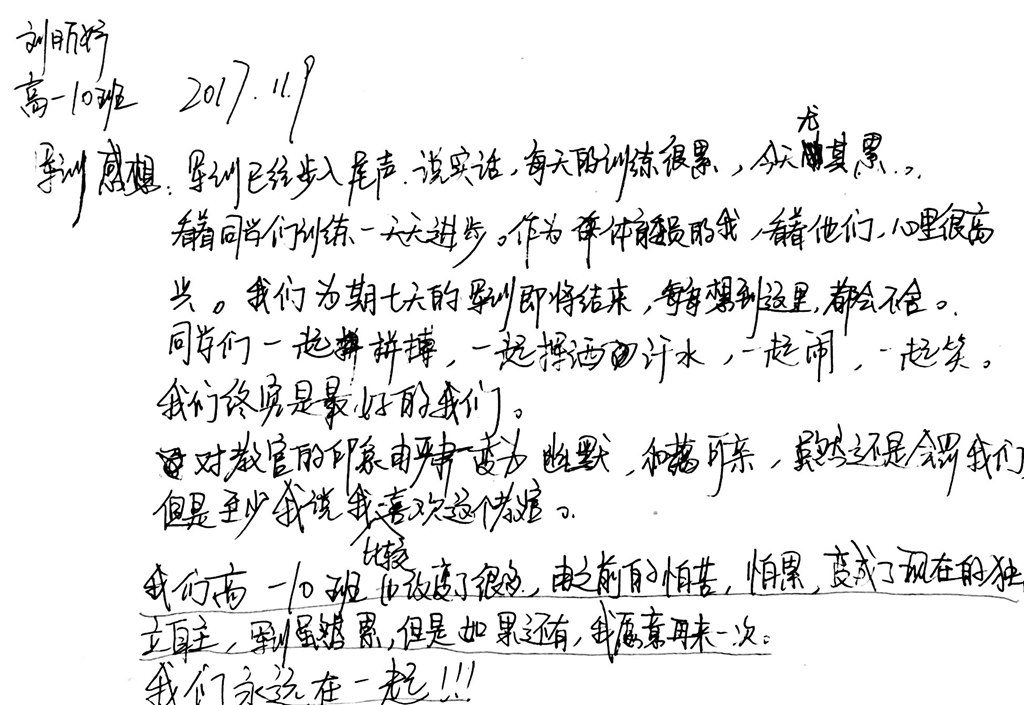 刘昕妤
高一10班 2017.11.9
军训感想：军训已经步入尾声.说实话,每天的训练很累,今天尤其累。
看着同学们训练一天天进步。作为体育委员的我,看着他们,心里很高
兴。我们为期七天的军训即将结束,每每想到这里,都会不舍。
同学们一起拼搏,一起挥洒汗水,一起闹,一起笑。
我们终究是最好的我们。
对教官的印象由严肃变为幽默,和蔼可亲,虽然还是会罚我们,
但是至少我说我比较喜欢这个教官。
我们高一10班也改变了很多,由之前的怕苦,怕累,变成了现在的独
立自主,军训虽然累,但是如果还有,我愿意再来一次。
我们永远在一起!!!